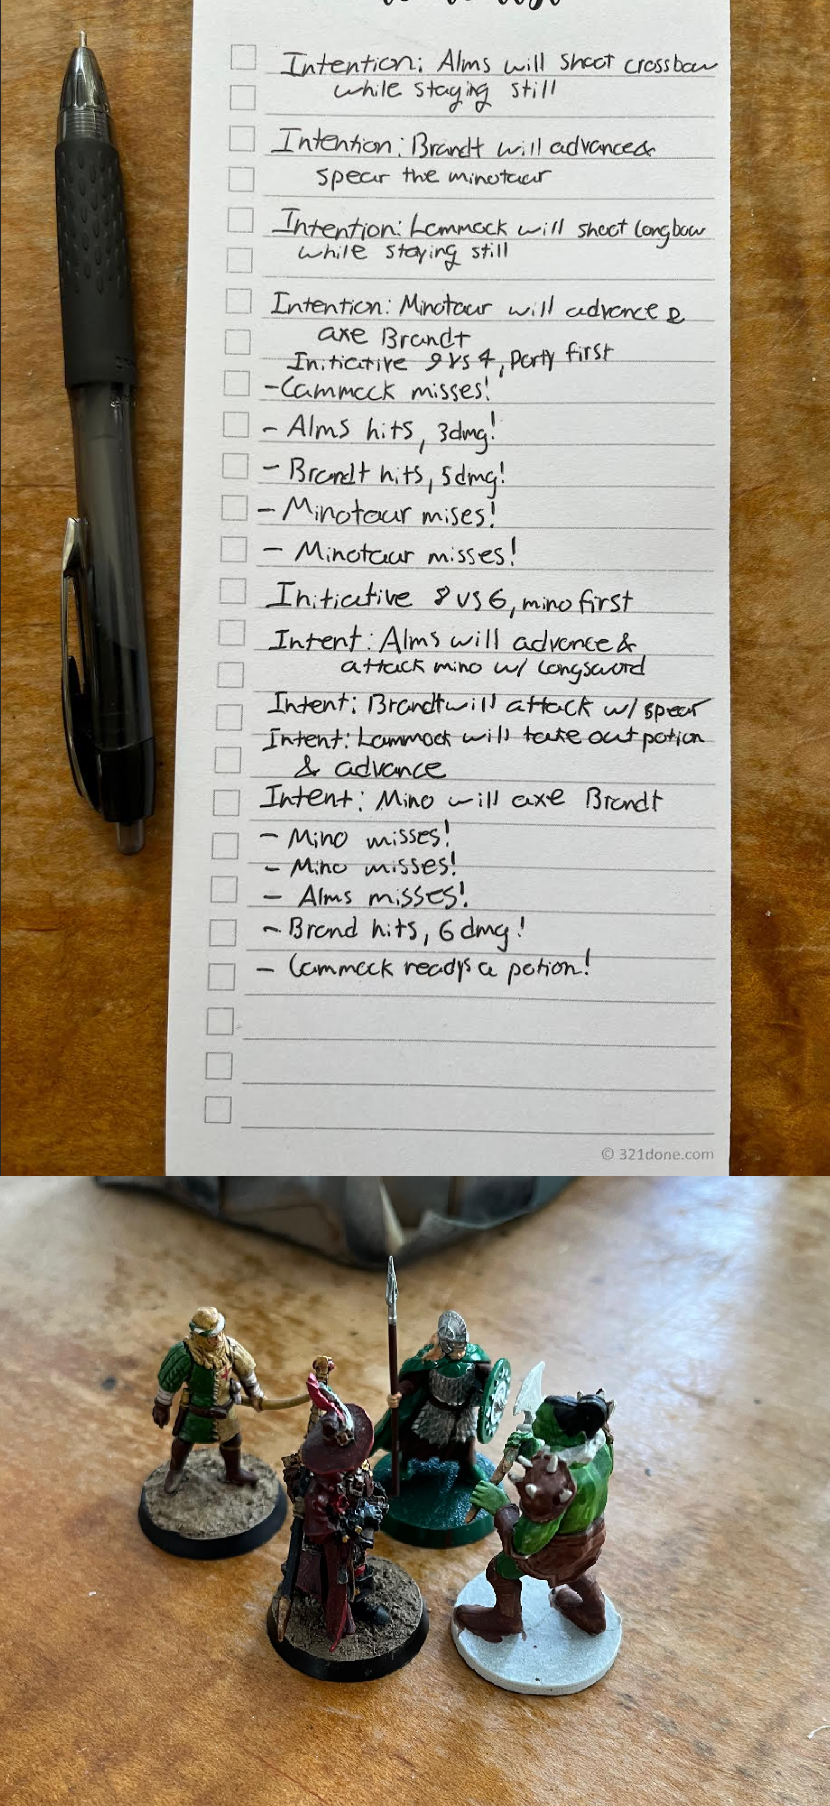 Intention: Alms will shoot crossbow
while staying still
Intention: Brandt will advance &
spear the minotaur
Intention: Lammock will shoot longbow
while staying still
Intention: Minotaur will advance &
axe Brandt
Initiative 9 vs 4, Party first
- Lammock misses!
- Alms hits, 3dmg!
- Brandt hits, 5dmg!
- Minotaur mises!
- Minotaur misses!
Initiative 8 vs 6, mino first
Intent: Alms will advance &
attack mino w/ longsword
Intent: Brandt will attack w/ spear
Intent: Lammock will take out potion
& advance
Intent: Mino will axe Brandt
- Mino misses!
- Mino misses!
- Alms misses!
- Brand hits, 6 dmg!
- Lammock readys a potion!
© 321done.com